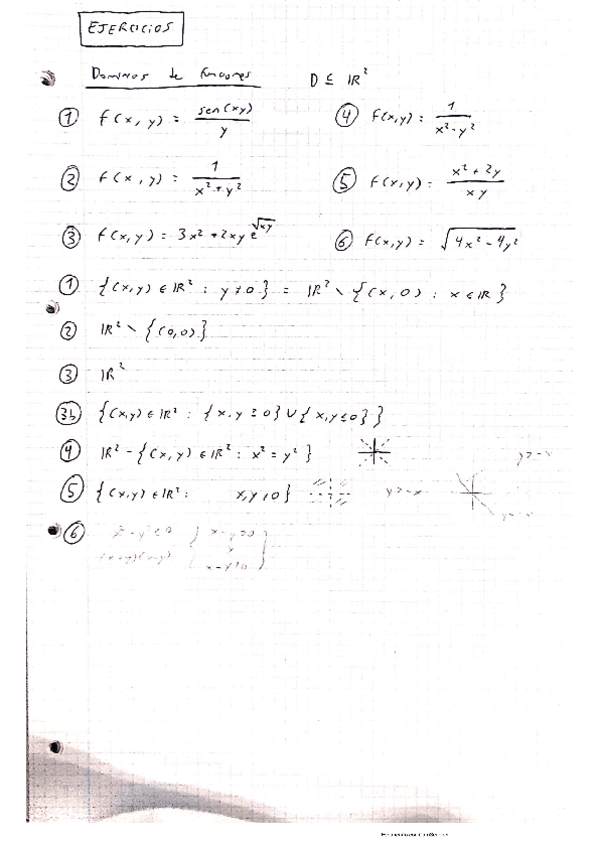 EJERCICIOS
Dominios de funciones D ⊆ IR²
① f(x, y) = sen(xy)/y ④ f(x,y) = 1/(x²-y²)
② f(x, y) = 1/(x²+y²) ⑤ f(x,y) = (x²+2y)/(xy)
③ f(x,y) = 3x²+2xy e^√xy ⑥ f(x,y) = √(4x²-4y²)
① {(x,y) ∈ IR² : y≠0} = IR² \ {(x,0) : x ∈ IR}
② IR² \ {(0,0)}
③ IR²
③b {(x,y) ∈ IR² : {x,y ≥ 0} ∪ {x,y ≤ 0}}
④ IR² - {(x,y) ∈ IR² : x² = y²}
⑤ {(x,y) ∈ IR² : x,y ≠ 0}
⑥